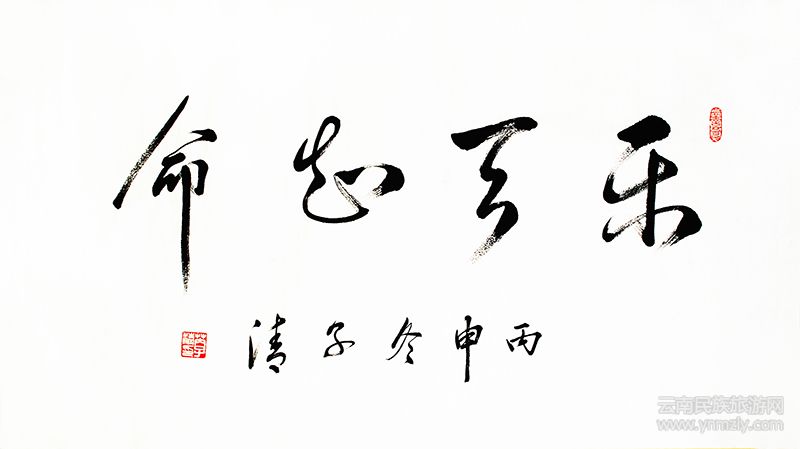 乐天知命
丙申冬子清
云南民族旅游网
www.ynmzly.com